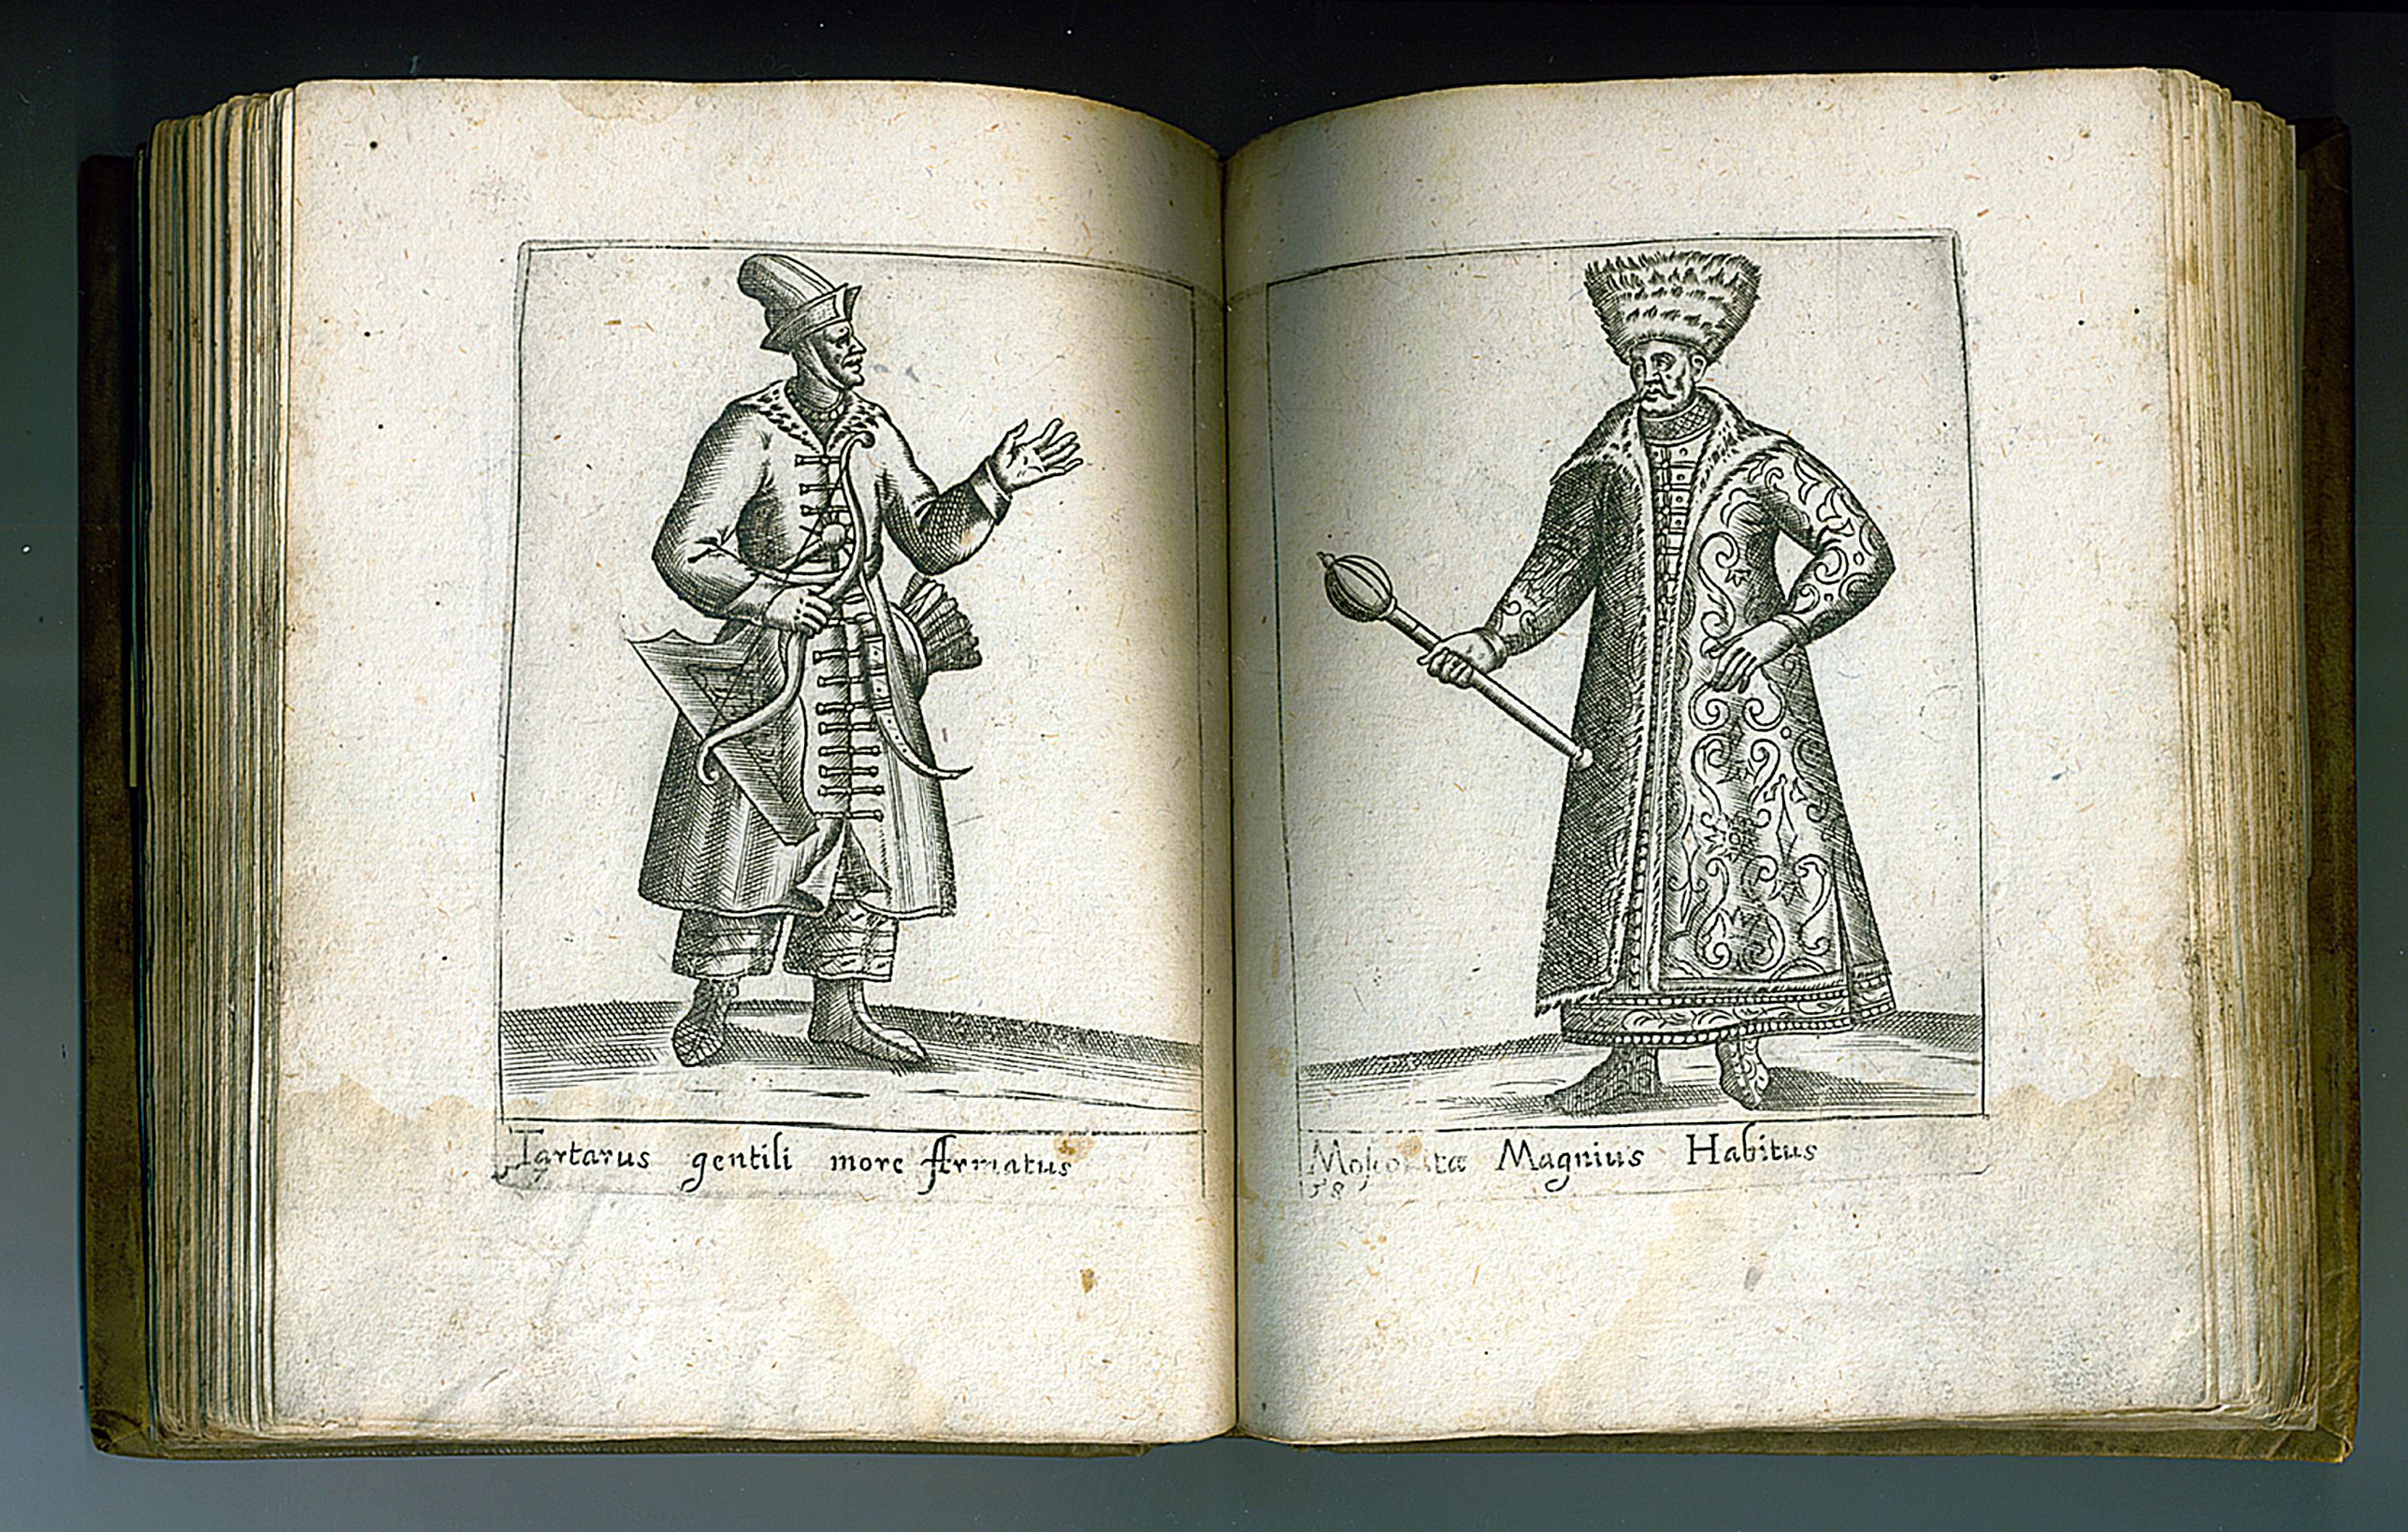 Tartarus gentili more Armatus
57
Moscovitæ Magnius Habitus
58